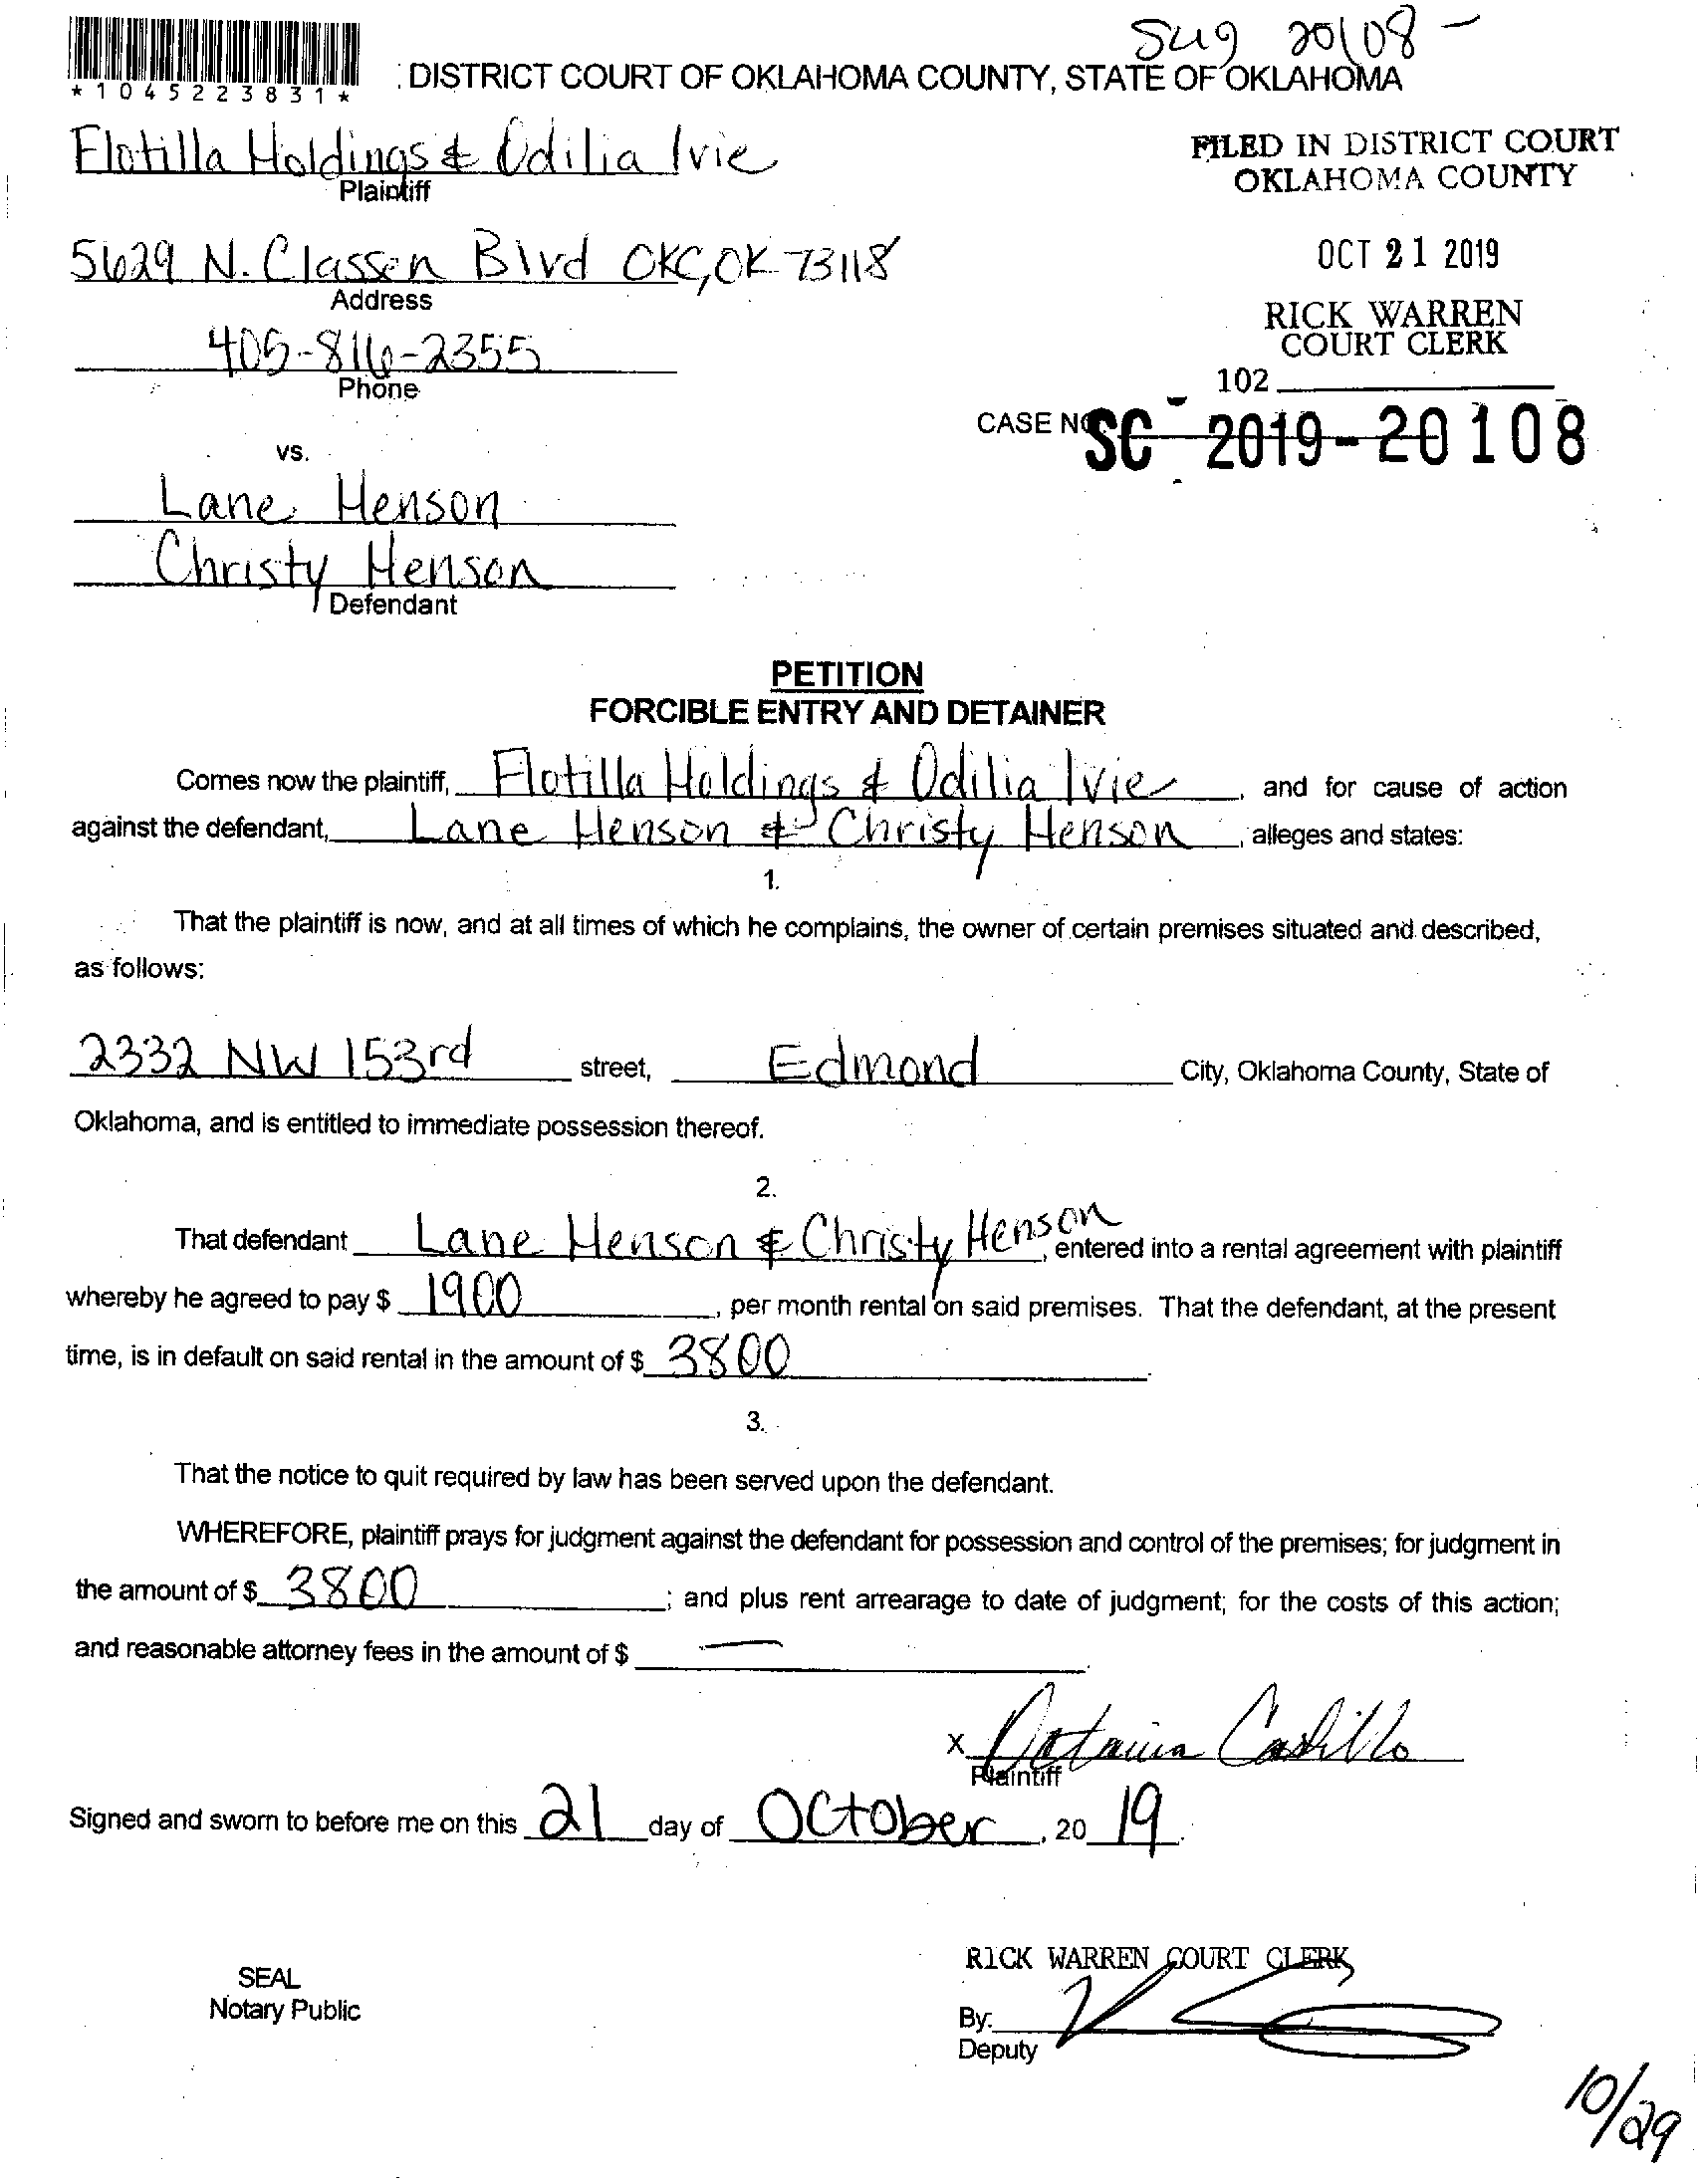 20108 -
* 1 0 4 5 2 2 3 8 3 1 *
DISTRICT COURT OF OKLAHOMA COUNTY, STATE OF OKLAHOMA
Flotilla Holdings & Odilia Ivie
Plaintiff
FILED IN DISTRICT COURT
OKLAHOMA COUNTY
5629 N. Classen Blvd OKC, OK 73118
Address
OCT 21 2019
405-816-2355
Phone
RICK WARREN
COURT CLERK
102
CASE NO. SC - 2019-20108
vs.
Lane Henson
Christy Henson
Defendant
PETITION
FORCIBLE ENTRY AND DETAINER
Comes now the plaintiff, Flotilla Holdings & Odilia Ivie, and for cause of action
against the defendant, Lane Henson & Christy Henson, alleges and states:
1.
That the plaintiff is now, and at all times of which he complains, the owner of certain premises situated and described,
as follows:
2332 NW 153rd street, Edmond City, Oklahoma County, State of
Oklahoma, and is entitled to immediate possession thereof.
2.
That defendant Lane Henson & Christy Henson, entered into a rental agreement with plaintiff
whereby he agreed to pay $ 1900, per month rental on said premises. That the defendant, at the present
time, is in default on said rental in the amount of $ 3800.
3.
That the notice to quit required by law has been served upon the defendant.
WHEREFORE, plaintiff prays for judgment against the defendant for possession and control of the premises; for judgment in
the amount of $ 3800; and plus rent arrearage to date of judgment; for the costs of this action;
and reasonable attorney fees in the amount of $ —.
X Castillo
Plaintiff
Signed and sworn to before me on this 21 day of October, 20 19.
SEAL
Notary Public
RICK WARREN COURT CLERK
By:
Deputy
10/29